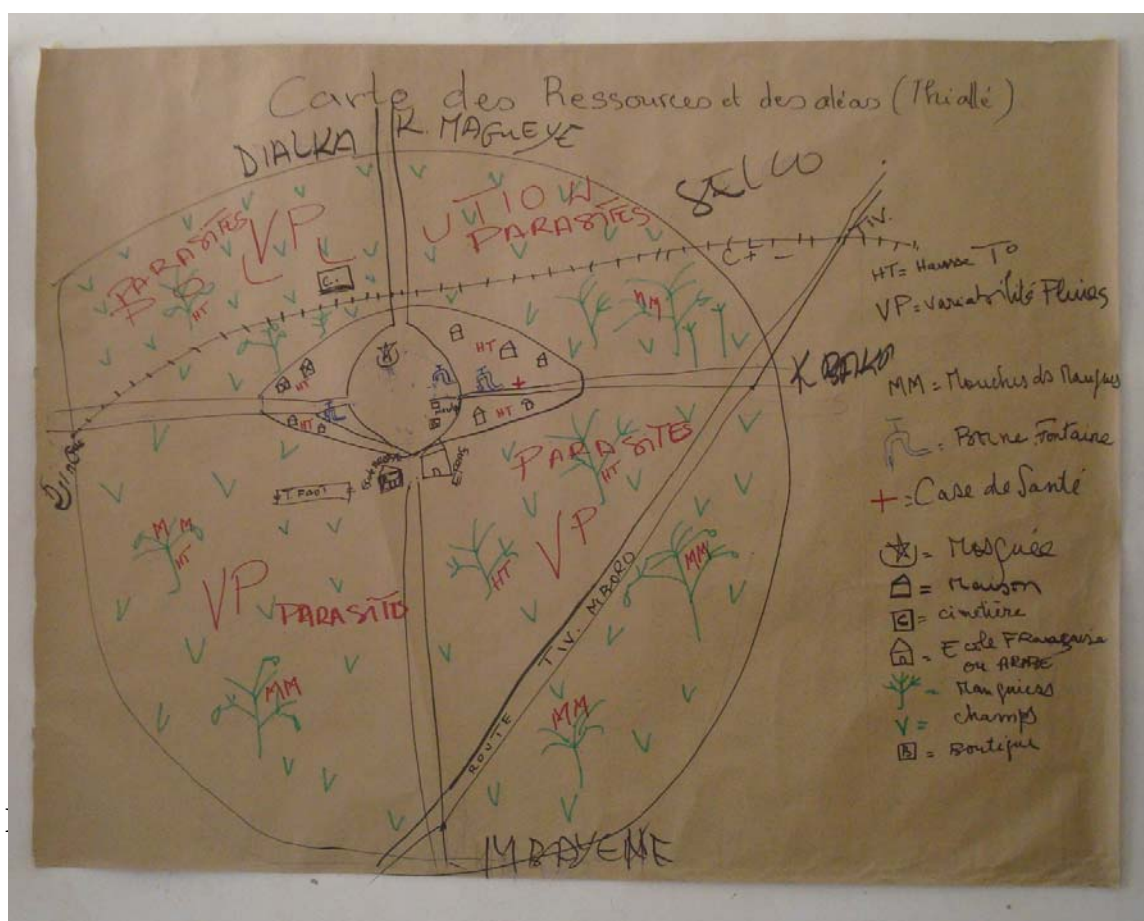 Carte des Ressources et des aléas (Thiallé)
DIALKA
K. MAGUEYE
SELCO
TIV.
C + -
PARASITES
VP
PARASITES
C.
HT
MM
HT
HT
HT
HT
HT
K BAKO
PARASITES
HT
T. FOOT
MM
HT
VP
HT
VP
MM
PARASITO
MM
MM
ROUTE TIV. MBORO
MBAYENE
HT = Hausse T°
VP = Variabilité Pluies
MM = Mouches des Mangues
= Borne Fontaine
+ = Case de Santé
= Mosquée
= Maison
C = cimétière
= Ecole Française
ou ARABE
= Manguiers
V = champs
B = Boutique